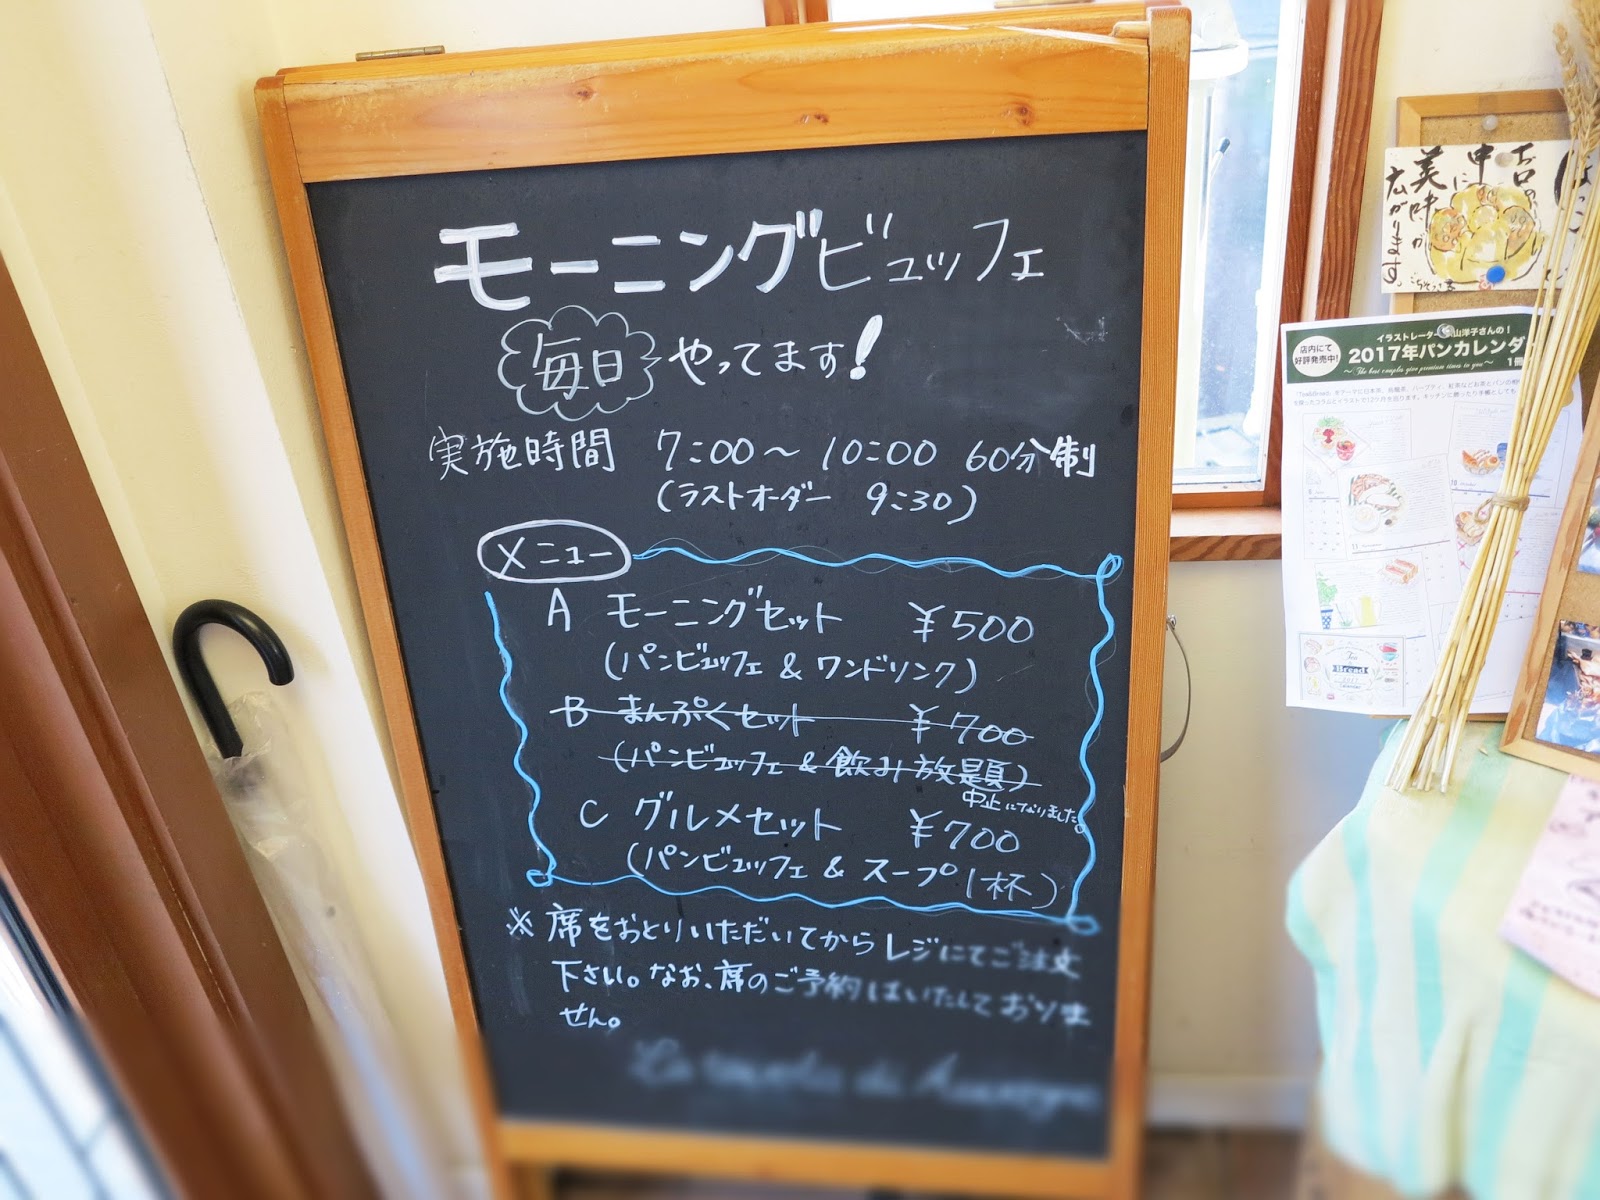 モーニングビュッフェ
毎日 やってます!
実施時間 7:00〜10:00 60分制
(ラストオーダー 9:30)
メニュー
A モーニングセット ¥500
(パンビュッフェ & ワンドリンク)
B まんぷくセット ¥700
(パンビュッフェ & 飲み放題)
中止になりました。
C グルメセット ¥700
(パンビュッフェ & スープ1杯)
※席をおとりいただいてからレジにてご注文
下さい。なお、席のご予約はいたしておりま
せん。
La tavola di Auvergne
美味が
広がります。
イラストレーター 山洋子さんの!
店内にて
好評発売中!
2017年パンカレンダ
1冊
〜 The best couples give premium times to you 〜
Tea
Bread